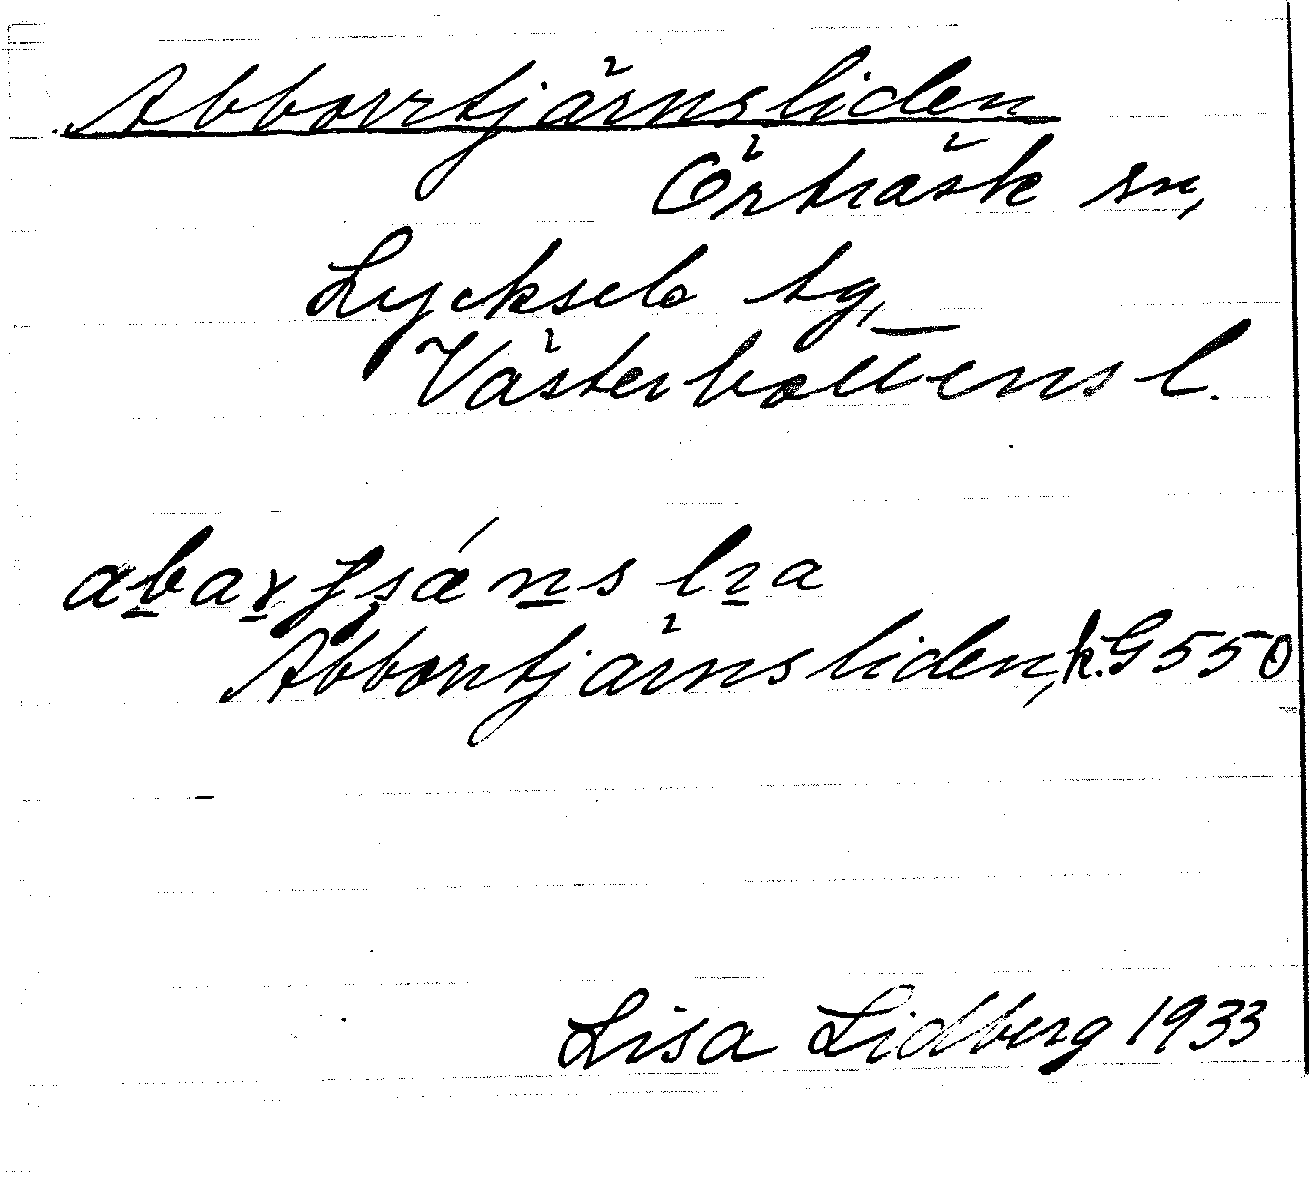 Abborrtjärnsliden
Örträsk sn,
Lycksele tg,
Västerbottens l.
Abborrtjärnsliden, k. G 550
Lisa Lidberg 1933